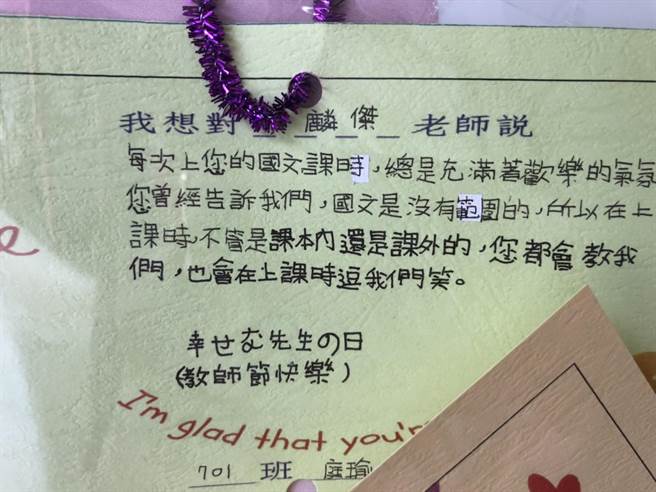 我想對 麟傑 老師說
每次上您的國文課時,總是充滿著歡樂的氣氛
您曾經告訴我們,國文是沒有範圍的,所以在上
課時,不管是課本內還是課外的,您都會教我
們,也會在上課時逗我們笑。
幸せな先生の日
(教師節快樂)
I'm glad that you'r
701 班 庭瑜